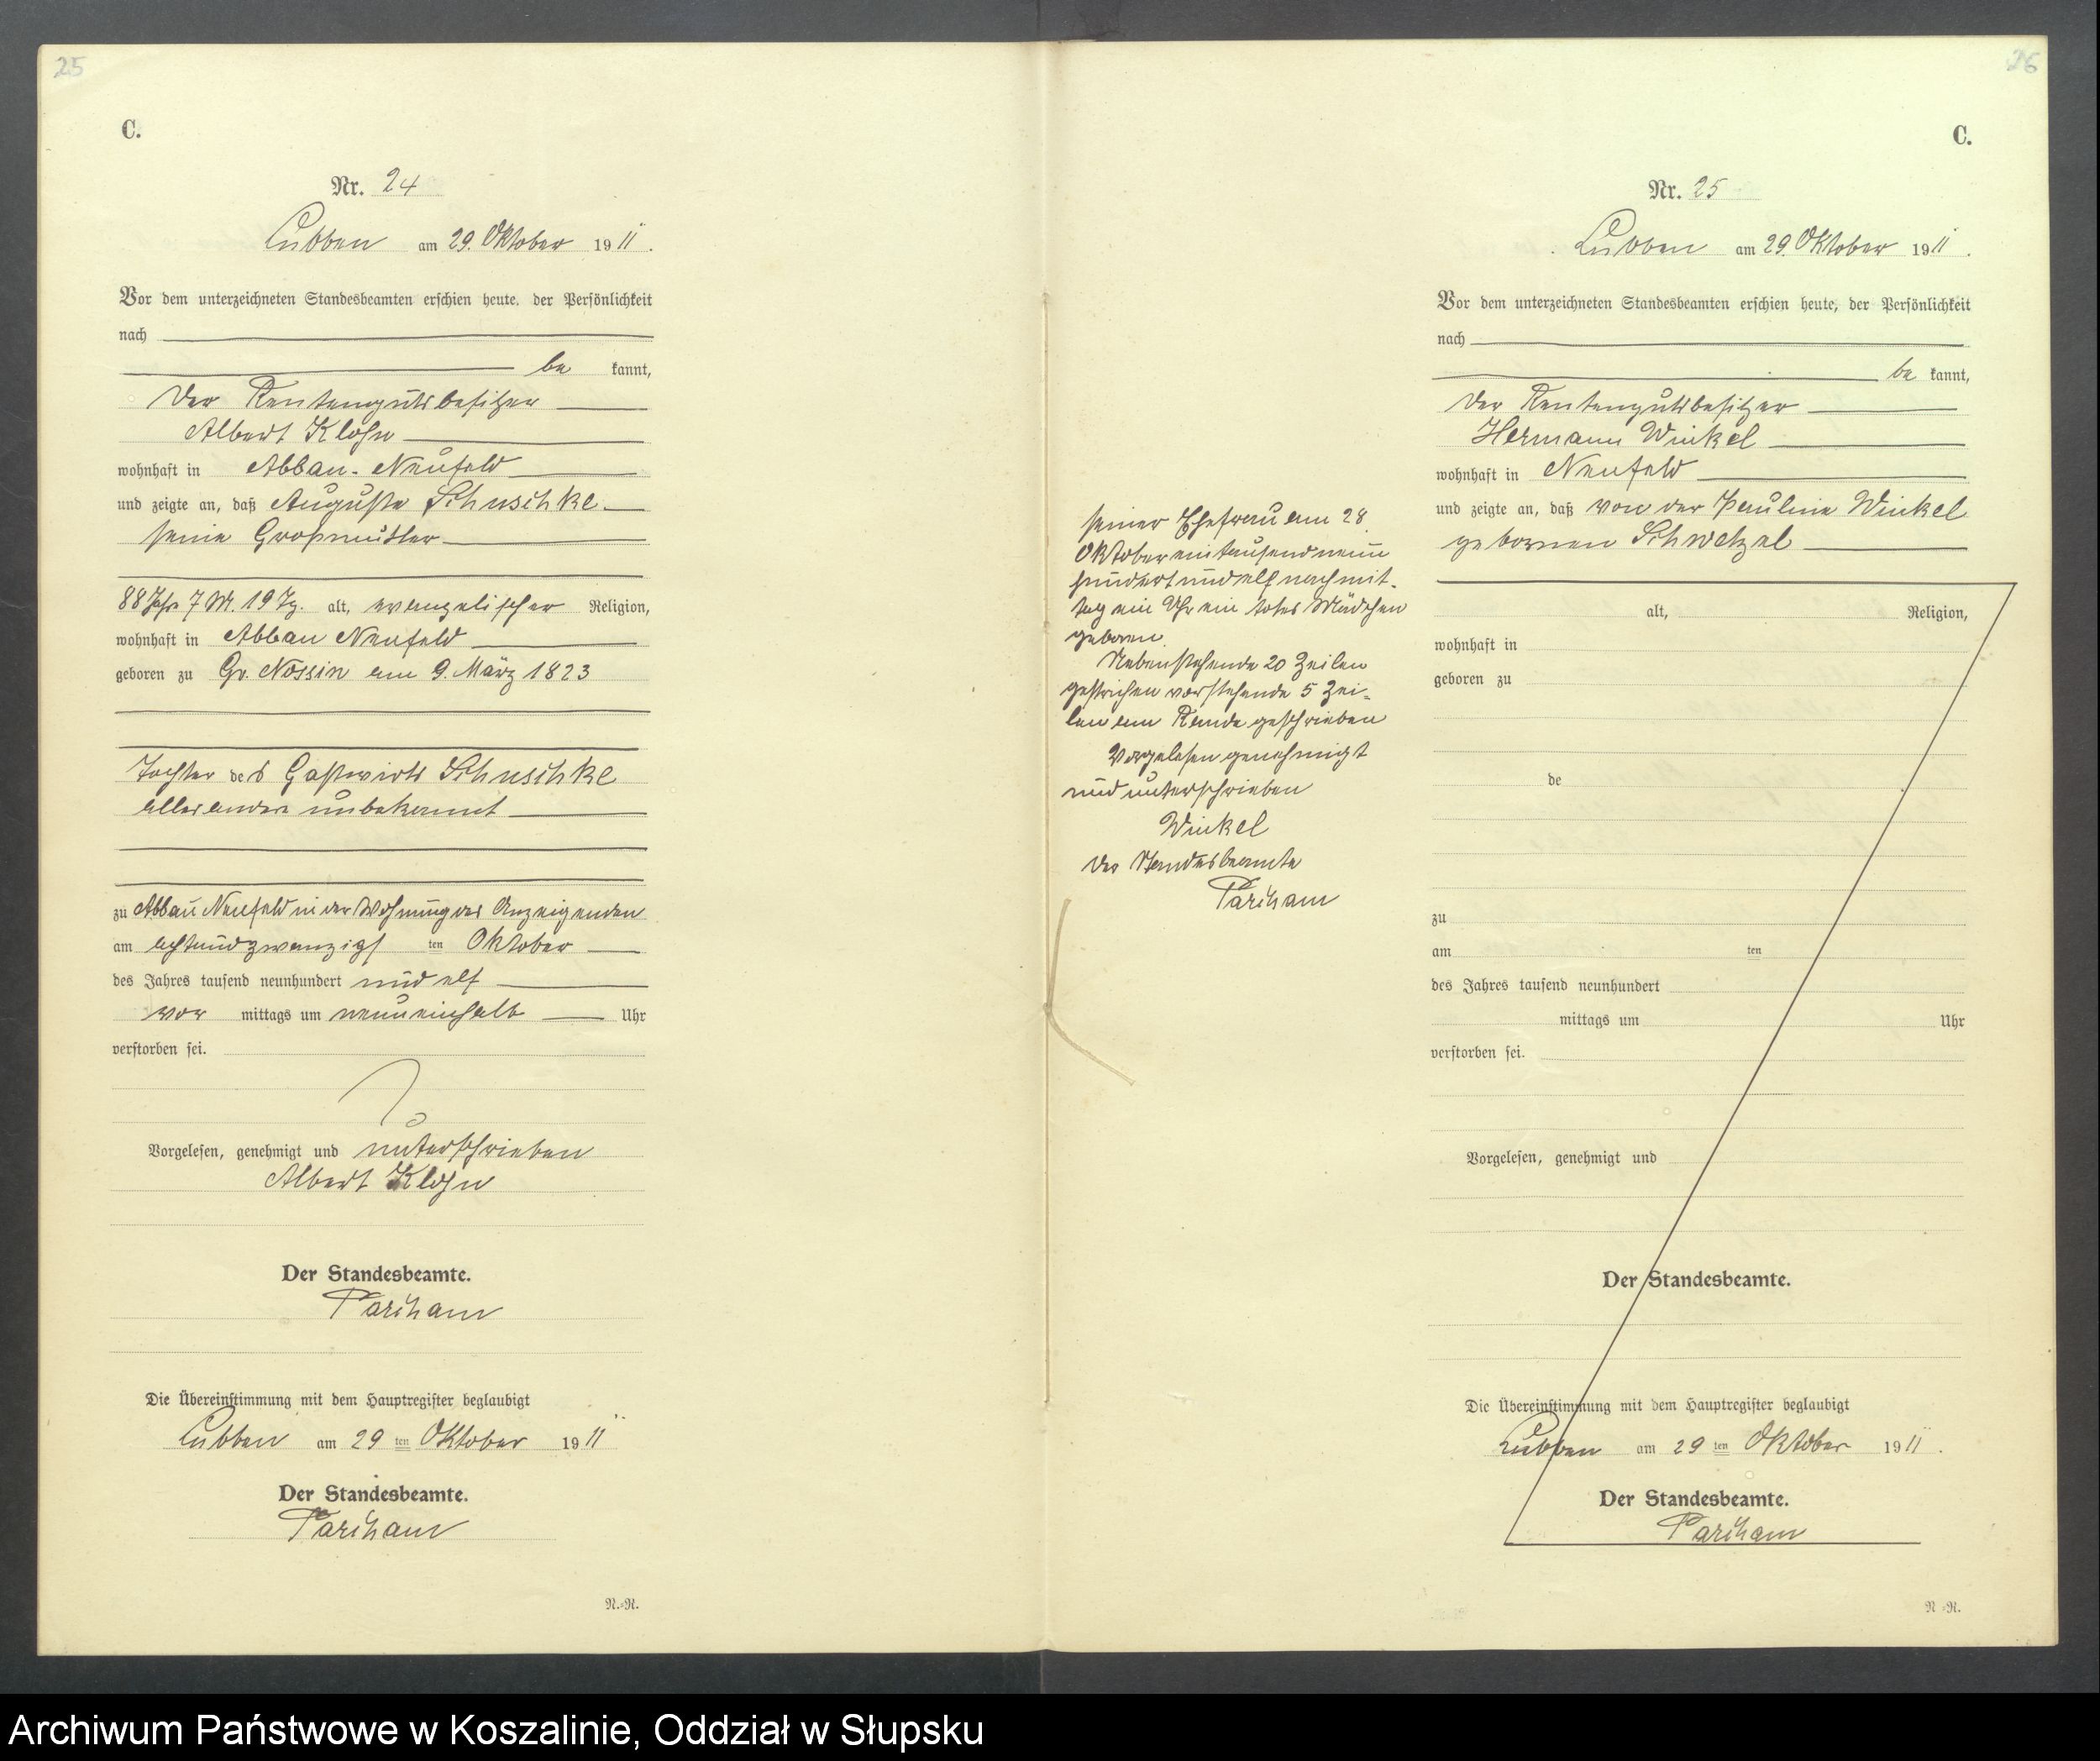 25
C.
Nr. 24
Lubben am 29. Oktober 1911.
Vor dem unterzeichneten Standesbeamten erschien heute, der Persönlichkeit
nach
be kannt,
der Rentengutsbesitzer
Albert Klohn
wohnhaft in Abbau-Neufeld
und zeigte an, daß Auguste Schuschke
seine Großmutter
88 Jhr. 7 M. 19 Tg. alt, evangelischer Religion,
wohnhaft in Abbau Neufeld
geboren zu Gr. Nossin am 9. März 1823
Tochter des Gastwirts Schuschke
alles andere unbekannt
zu Abbau Neufeld in der Wohnung des Anzeigenden
am achtundzwanzigsten Oktober
des Jahres tausend neunhundert und elf
vor mittags um neuneinhalb Uhr
verstorben sei.
Vorgelesen, genehmigt und unterschrieben
Albert Klohn
Der Standesbeamte.
Parcham
Die Übereinstimmung mit dem Hauptregister beglaubigt
Lubben am 29 ten Oktober 1911
Der Standesbeamte.
Parcham
N.-N.
26
C.
Nr. 25
Lubben am 29. Oktober 1911.
Vor dem unterzeichneten Standesbeamten erschien heute, der Persönlichkeit
nach
be kannt,
der Rentengutsbesitzer
Hermann Winkel
wohnhaft in Neufeld
und zeigte an, daß von der Pauline Winkel
gebornen Schwetzel
seiner Ehefrau am 28
Oktober eintausendneun
hundertundelf nachmit-
tag ein Uhr ein totes Mädchen
geboren
Nebenstehende 20 Zeilen
gestrichen vorstehende 5 Zei-
len am Rande geschrieben
Vorgelesen genehmigt
und unterschrieben
Winkel
Der Standesbeamte
Parcham
alt, Religion,
wohnhaft in
geboren zu
de
zu
am ten
des Jahres tausend neunhundert
mittags um Uhr
verstorben sei.
Vorgelesen, genehmigt und
Der Standesbeamte.
Die Übereinstimmung mit dem Hauptregister beglaubigt
Lubben am 29 ten Oktober 1911.
Der Standesbeamte.
Parcham
N.-N.
Archiwum Państwowe w Koszalinie, Oddział w Słupsku